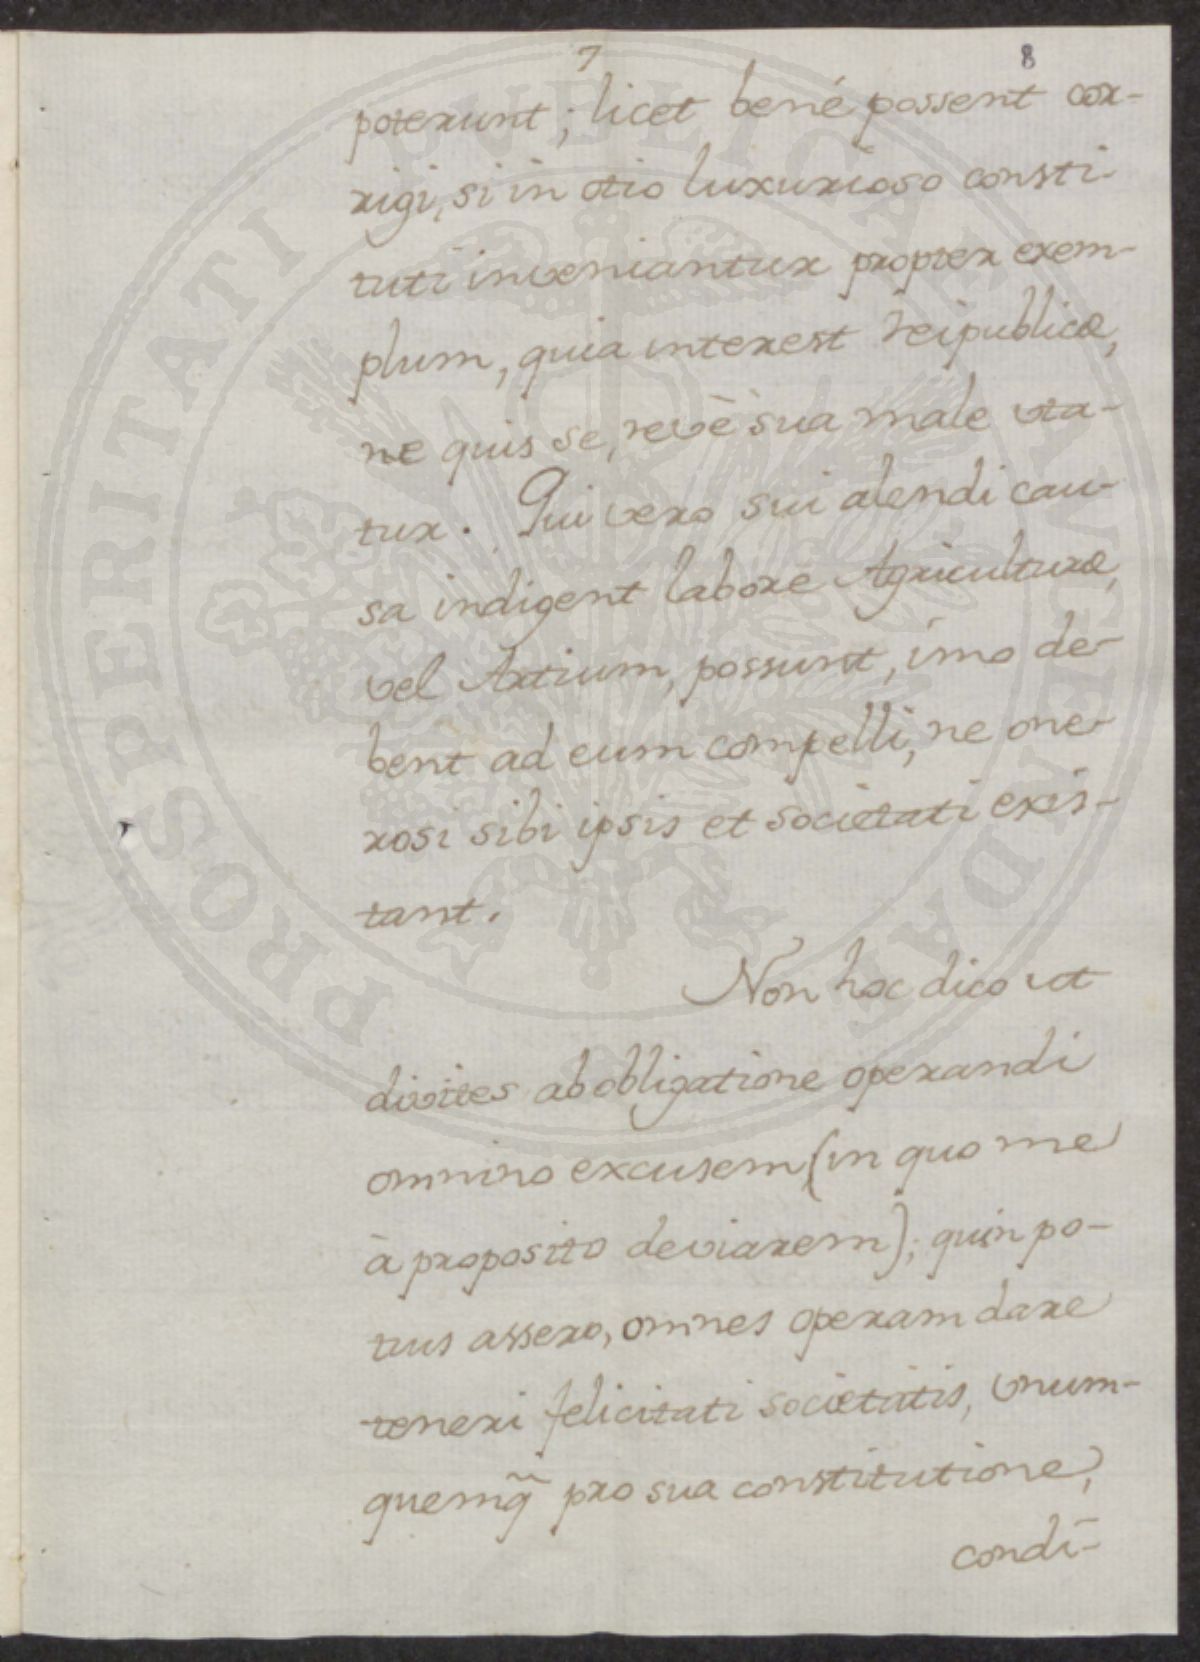 7 8
poterunt; licet bené possent cor-
rigi, si in otio luxurioso consti-
tuti inveniantur propter exem-
plum, quia interest reipublicæ,
ne quis se, revè sua male uta-
tur. Qui vero sui alendi cau-
sa indigent labore Agriculturæ,
vel Artium, possunt, imo de-
bent ad eum compelli, ne one-
rosi sibi ipsis et societati exis-
tant.
Non hoc dico ut
divites ab obligatione operandi
omnino excusem (in quo me
à proposito deviarem); quin po-
tius assero, omnes operam dare
teneri felicitati societatis, unum-
quemq̃ pro sua constitutione,
condi-
PROSPERITATI PVBLICAE AVGENDAE